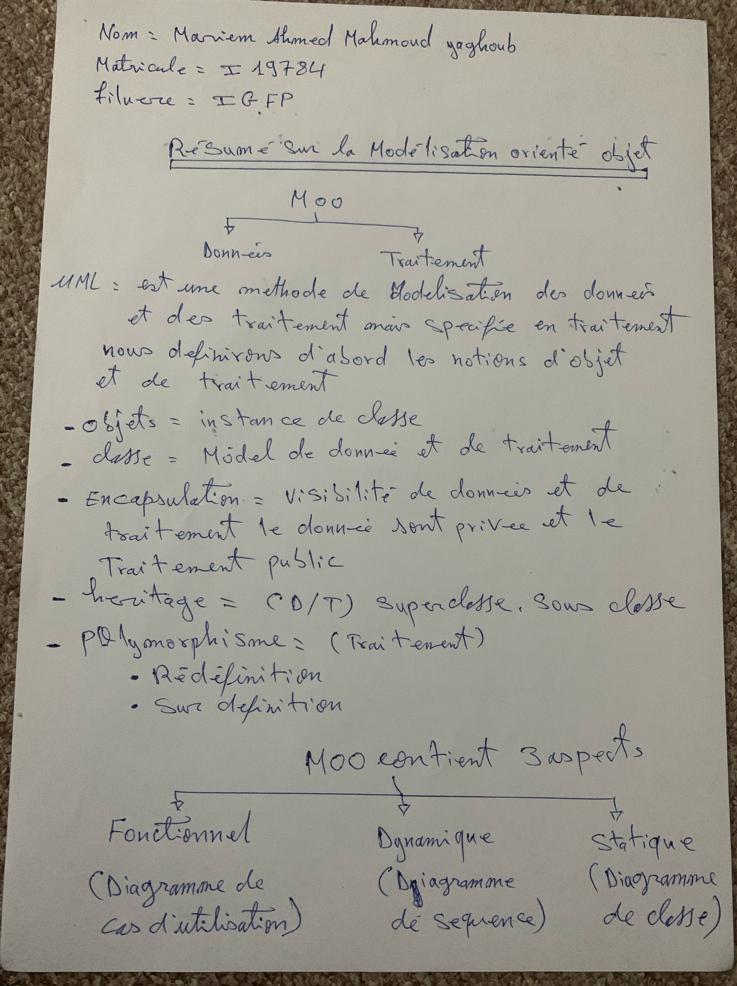 Nom = Mariem Ahmed Mahmoud yaghoub
Matricule = I 19784
filuere = IG FP
Résumé sur la Modélisation orienté objet
MOO
Données Traitement
UML : est une methode de Modelisation des données
et des traitement mais specifiée en traitement
nous definirons d'abord les notions d'objet
et de traitement
- objets = instance de classe
- classe = Model de donnée et de traitement
- Encapsulation = visibilité de données et de
traitement le donnée sont privee et le
Traitement public
- heritage = (D/T) superclasse, sous classe
- polymorphisme = (Traitement)
• Rédéfinition
• Sur definition
MOO contient 3 aspects
Fonctionnel Dynamique Statique
(Diagramme de (Diagramme (Diagramme
cas d'utilisation) de sequence) de classe)